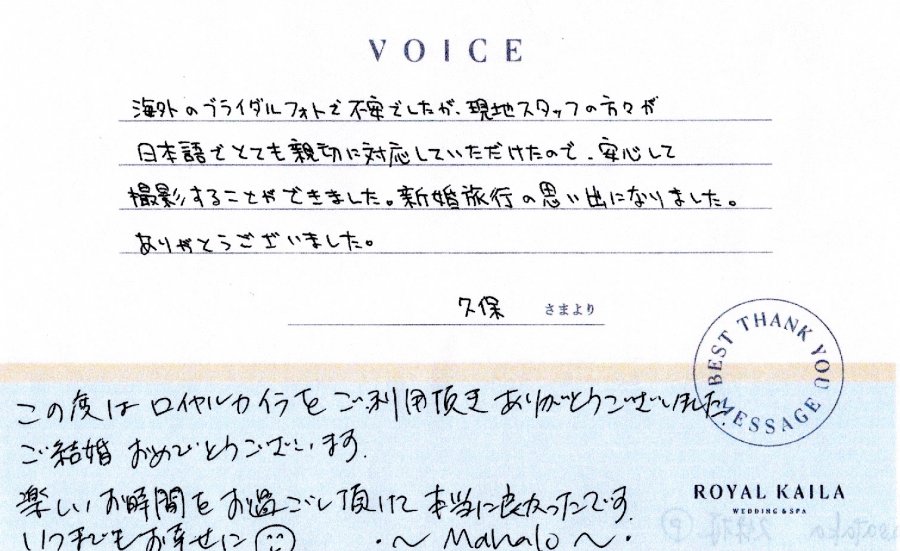 VOICE
海外のブライダルフォトで不安でしたが、現地スタッフの方々が
日本語でとても親切に対応していただけたので、安心して
撮影することができました。新婚旅行の思い出になりました。
ありがとうございました。
久保 さまより
BEST THANK YOU MESSAGE
この度はロイヤルカイラをご利用頂きありがとうございました。
ご結婚おめでとうございます。
楽しいお時間をお過ごし頂けて本当に良かったです。
ROYAL KAILA
WEDDING & SPA
いつまでもお幸せに ・〜 Mahalo 〜・